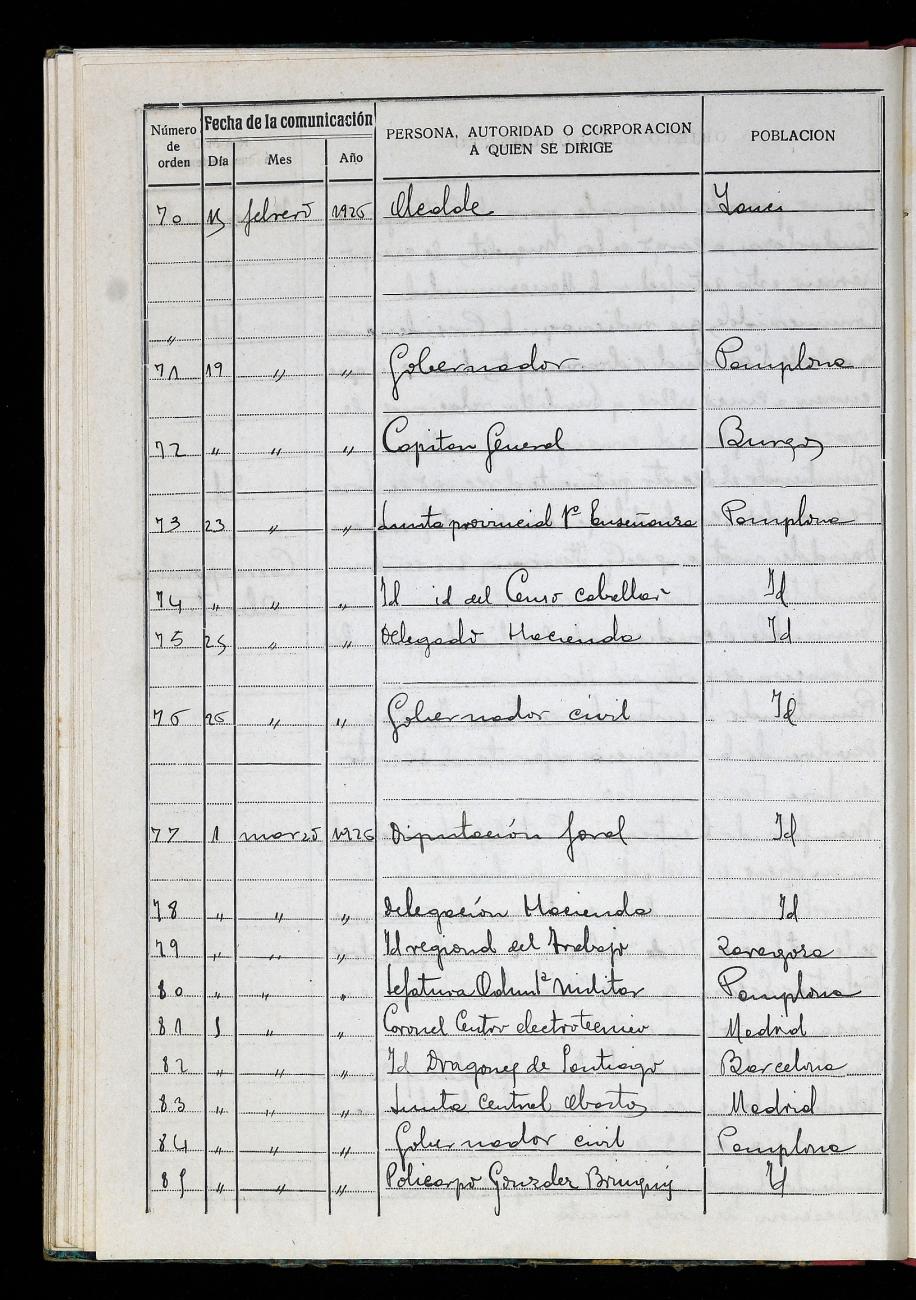 Número de orden Fecha de la comunicación PERSONA, AUTORIDAD O CORPORACION A QUIEN SE DIRIGE POBLACION
Día Mes Año
70 15 febrero 1926 Alcalde
"
71 19 " " Gobernador Pamplona
72 " " " Capitan General Burgos
73 23 " " Junta provincial 1ª Enseñanza Pamplona
74 " " " Id id del Censo caballar Id
75 25 " " Delegado Hacienda Id
76 26 " " Gobernador civil Id
77 1 marzo 1926 Diputación foral Id
78 " " " Delegación Hacienda Id
79 " " " Id regional del Trabajo Zaragoza
80 " " " Jefatura Admntª Militar Pamplona
81 5 " " Coronel Centro electrotecnico Madrid
82 " " " Id Dragones de Santiago Barcelona
83 " " " Junta Central Abastos Madrid
84 " " " Gobernador civil Pamplona
85 " " " Policarpo Gonzalez Id